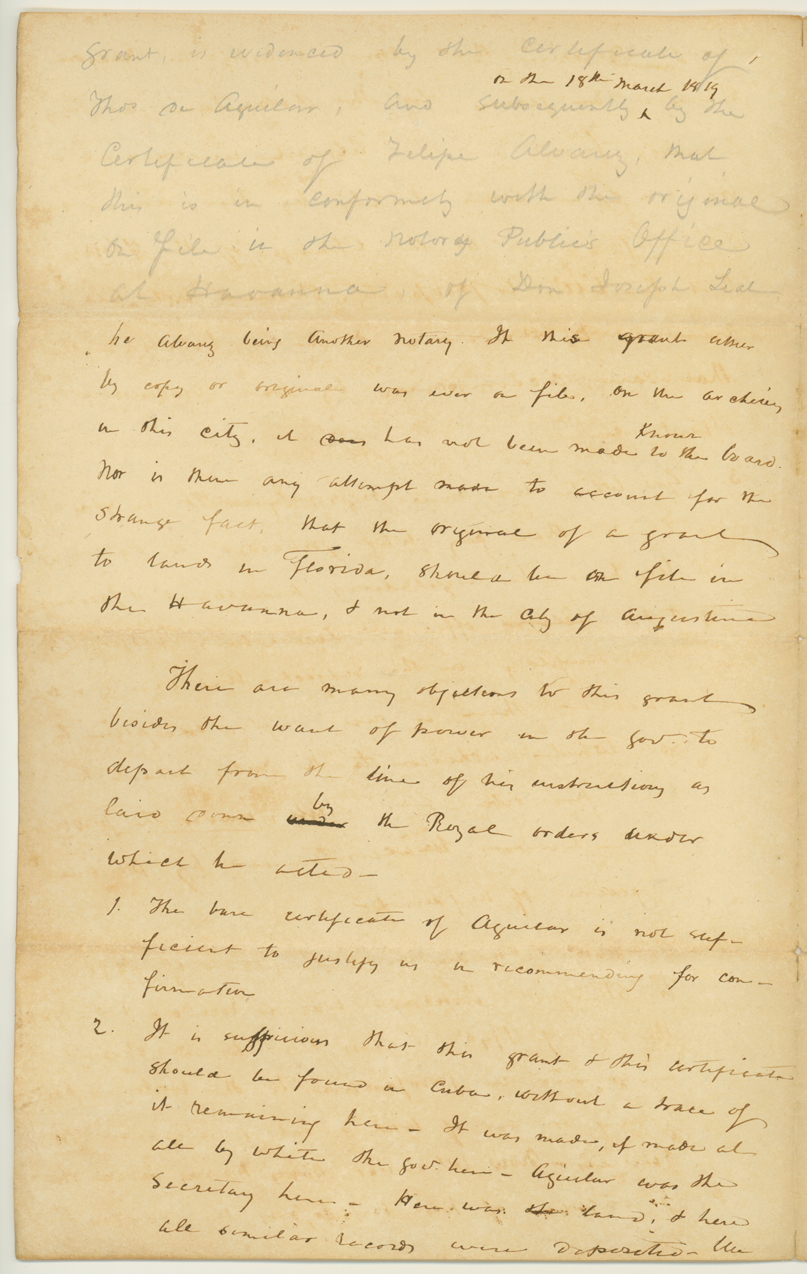 grant, is evidenced by the certificate of
on the 18th March 1819
Thos de Aguilar, and subsequently ^ by the
Certificate of Felipe Alvarez, that
this is in conformity with the original
on file in the Notory Public's Office
at Havanna of Don Joseph Led
he Alvarez being another notary. If this grant either
by copy or original was ever on file, on the archives
in this city, it does has not been made to the board.
known
Nor is there any attempt made to account for the
strange fact, that the original of a grant
to lands in Florida, should be on file in
the Havanna, & not in the City of Augustine
There are many objections to this grant
besides the want of power in the gov. to
depart from the line of his instructions as
laid down under by the Royal orders under
which he acted—
1. The bare certificate of Aguilar is not suf-
ficient to justify us in recommending for con-
firmation
2. It is suspicious that this grant & this certificate
should be found in Cuba, without a trace of
it remaining here— It was made, if made at
all by White the gov. here— Aguilar was the
Secretary here— Here was the land, & here
all similar records were deposited— The